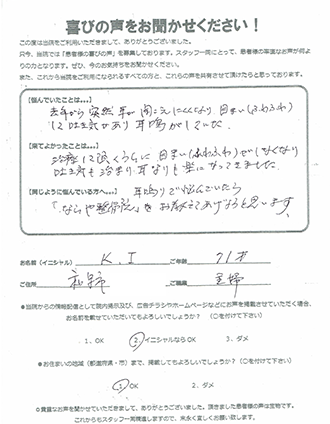 喜びの声をお聞かせください！
この度は当院をご利用いただきまして、ありがとうございました。
只今、当院では「患者様の喜びの声」を募集しております。スタッフ一同にとって、患者様の率直なお声が何よ
りの力となります。ぜひ、今のお気持ちをお聞かせください。
また、これから当院をご利用になられるすべての方と、これらの声を共有させて頂けたらと思っております。
【悩んでいたことは…】
去年から突然耳が聞こえにくくなり 目まい(ふわふわ)
に吐き気があり 耳鳴がしていた。
【来てよかったことは…】
治療に 目まい(ふわふわ)がしなくなり
吐き気も治まり 耳なりも楽になってきました
【同じように悩んでいる方へ…】 耳鳴りで悩んでいたら
「ならや整骨院」を お教えてあげようと思います。
お名前(イニシャル) K．I ご年齢 71才
ご住所 ご職業 主婦
●当院からの情報配信として院内掲示及び、広告チラシやホームページなどにお声を掲載させていただく場合、
お名前を載せていただいてもよろしいでしょうか？ (○を付けて下さい)
1．OK 2．イニシャルならOK 3．ダメ
●お住まいの地域（都道府県・市）まで、掲載してもよろしいでしょうか？ (○を付けて下さい)
1．OK 2．ダメ
◇貴重なお声を聞かせていただきまして、ありがとうございました。頂きました患者様の声は宝物です。
これからもスタッフ一同精進しますので、末永く宜しくお願い致します。